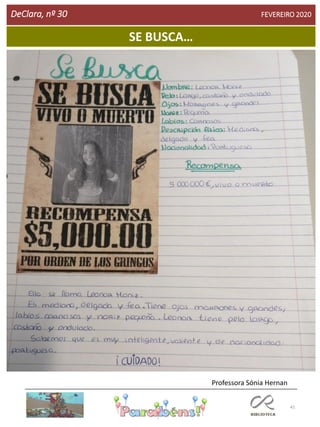 DeClara, nº 30
FEVEREIRO 2020
SE BUSCA...
Se Busca
SE BUSCA
VIVO O MUERTO
RECOMPENSA
$5,000.00
POR ORDEN DE LOS GRINGOS
Nombre: Leonor Moniz
Pelo: Largo, castaño y ondulado
Ojos: Marrones y grandes
Nariz: Pequeña
Labios: Carnosos
Descripción física: Mediana,
delgada y fea
Nacionalidad: Portuguesa
Recompensa
5 000 000 €, vivo o muerto
Ella se llama Leonor Moniz.
Es mediana, delgada y fea. Tiene ojos marrones y grandes,
labios carnosos y nariz pequeña. Leonor tiene pelo largo,
castaño y ondulado.
Sabemos que es muy inteligente, valiente y de nacionalidad
portuguesa.
¡CUIDADO!
Professora Sónia Hernan
Parabéns!
BIBLIOTECA